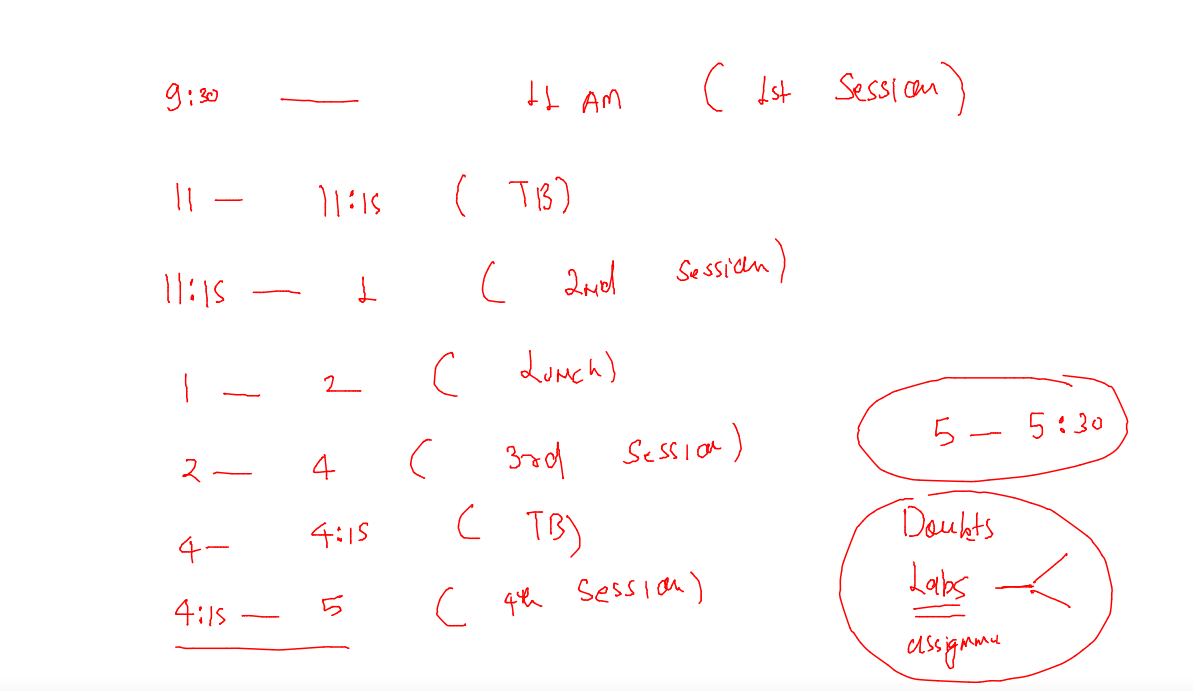 9:30 — 11 AM ( 1st Session)
11 — 11:15 ( TB)
11:15 — 1 ( 2nd Session)
1 — 2 ( Lunch)
2 — 4 ( 3rd Session)
4 — 4:15 ( TB)
4:15 — 5 ( 4th Session)
5 — 5:30
Doubts
Labs